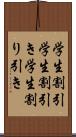 学生割引
学生割引
き学生割
り引き